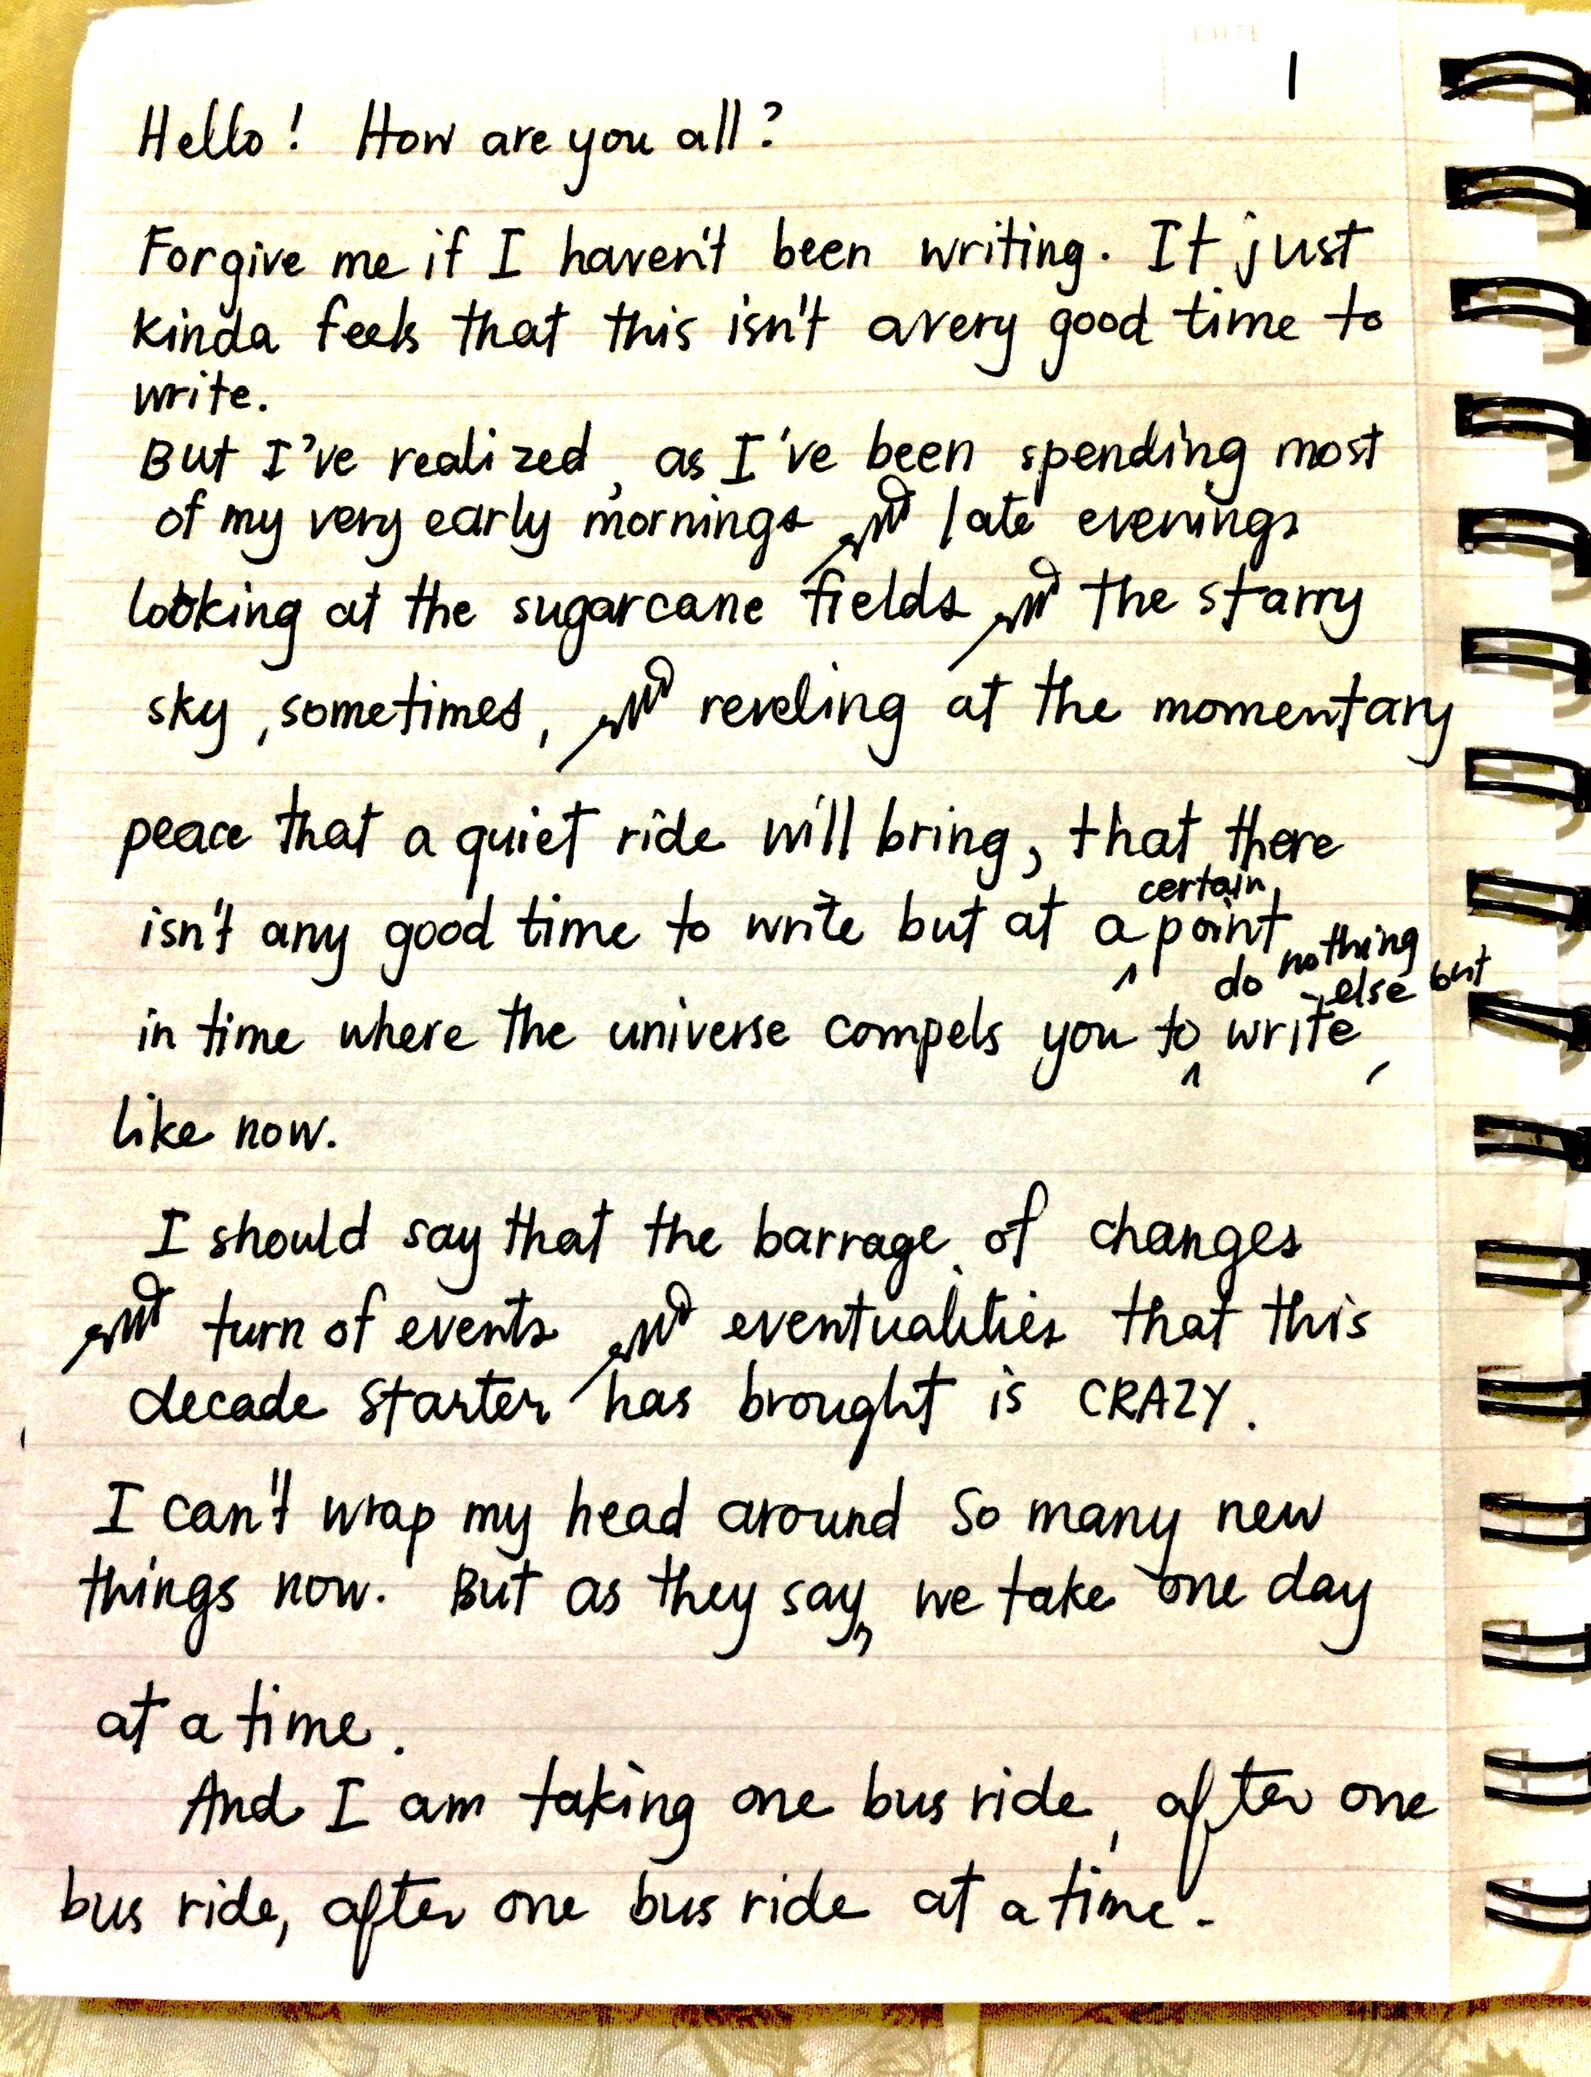 1
Hello! How are you all?
Forgive me if I haven't been writing. It just
kinda feels that this isn't a very good time to
write.
But I've realized, as I've been spending most
of my very early mornings and late evenings
looking at the sugarcane fields and the starry
sky, sometimes, and reveling at the momentary
peace that a quiet ride will bring, that there
isn't any good time to write but at a certain point
in time where the universe compels you to do nothing else but write,
like now.
I should say that the barrage of changes
and turn of events and eventualities that this
decade starter has brought is CRAZY.
I can't wrap my head around so many new
things now. But as they say, we take one day
at a time.
And I am taking one bus ride, after one
bus ride, after one bus ride at a time.